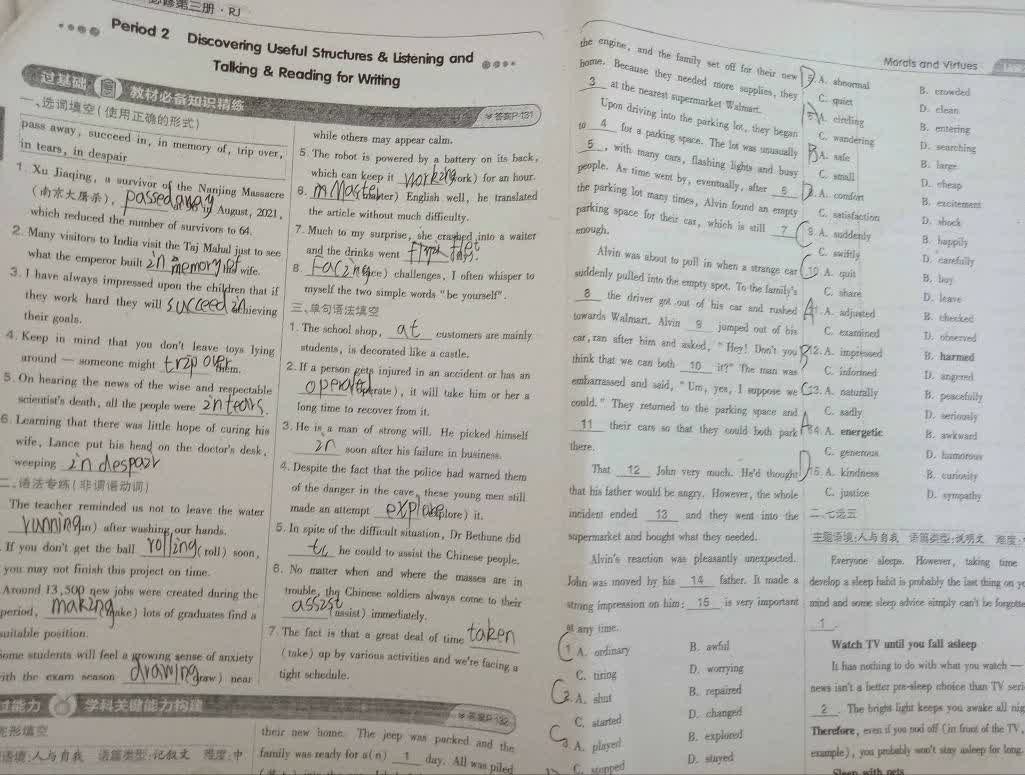 必修第三册·RJ
Period 2 Discovering Useful Structures & Listening and
Talking & Reading for Writing
过基础 教材必备知识精练
答案P·131
一、选词填空(使用正确的形式)
pass away, succeed in, in memory of, trip over,
in tears, in despair
1. Xu Jiaqing, a survivor of the Nanjing Massacre
(南京大屠杀), passed away at 96 in August, 2021,
which reduced the number of survivors to 64.
2. Many visitors to India visit the Taj Mahal just to see
what the emperor built in memory of his wife.
3. I have always impressed upon the children that if
they work hard they will succeed in achieving
their goals.
4. Keep in mind that you don't leave toys lying
around — someone might trip over them.
5. On hearing the news of the wise and respectable
scientist's death, all the people were in tears.
6. Learning that there was little hope of curing his
wife, Lance put his head on the doctor's desk,
weeping in despair
二、语法专练(非谓语动词)
The teacher reminded us not to leave the water
running (run) after washing our hands.
If you don't get the ball rolling (roll) soon,
you may not finish this project on time.
Around 13,500 new jobs were created during the
period, making (make) lots of graduates find a
suitable position.
Some students will feel a growing sense of anxiety
with the exam season drawing (draw) near
while others may appear calm.
5. The robot is powered by a battery on its back,
which can keep it working (work) for an hour.
6. (master) English well, he translated
the article without much difficulty.
7. Much to my surprise, she crashed into a waiter
and the drinks went
8. Facing (face) challenges, I often whisper to
myself the two simple words "be yourself".
三、单句语法填空
1. The school shop, at customers are mainly
students, is decorated like a castle.
2. If a person gets injured in an accident or has an
(operate), it will take him or her a
long time to recover from it.
3. He is a man of strong will. He picked himself
in soon after his failure in business.
4. Despite the fact that the police had warned them
of the danger in the cave, these young men still
made an attempt explore (explore) it.
5. In spite of the difficult situation, Dr Bethune did
he could to assist the Chinese people.
6. No matter when and where the masses are in
trouble, the Chinese soldiers always come to their
assist (assist) immediately.
7. The fact is that a great deal of time taken
(take) up by various activities and we're facing a
tight schedule.
过能力 学科关键能力构建
答案P·132
完形填空
语境:人与自我 语篇类型:记叙文 难度:中
their new home. The jeep was packed and the
family was ready for a(n) 1 day. All was piled
Morals and Virtues
the engine, and the family set off for their new
home. Because they needed more supplies, they
3 at the nearest supermarket Walmart.
Upon driving into the parking lot, they began
to 4 for a parking space. The lot was unusually
5 , with many cars, flashing lights and busy
people. As time went by, eventually, after 6
the parking lot many times, Alvin found an empty
parking space for their car, which is still 7
enough.
Alvin was about to pull in when a strange car
suddenly pulled into the empty spot. To the family's
8 the driver got out of his car and rushed
towards Walmart. Alvin 9 jumped out of his
car, ran after him and asked, "Hey! Don't you
think that we can both 10 it?" The man was
embarrassed and said, "Um, yes, I suppose we
could." They returned to the parking space and
11 their cars so that they could both park
there.
That 12 John very much. He'd thought
that his father would be angry. However, the whole
incident ended 13 and they went into the
supermarket and bought what they needed.
Alvin's reaction was pleasantly unexpected.
John was moved by his 14 father. It made a
strong impression on him: 15 is very important
at any time.
C 1. A. ordinary B. awful
C. tiring D. worrying
C 2. A. shut B. repaired
C. started D. changed
C 3. A. played B. explored
C. stopped D. stayed
5. A. abnormal B. crowded
C. quiet D. clean
A. circling B. entering
C. wandering D. searching
B A. safe B. large
C. small D. cheap
8. A. comfort B. excitement
C. satisfaction D. shock
C 9. A. suddenly B. happily
C. swiftly D. carefully
C 10. A. quit B. buy
C. share D. leave
A 11. A. adjusted B. checked
C. examined D. observed
12. A. impressed B. harmed
C. informed D. angered
C 13. A. naturally B. peacefully
C. sadly D. seriously
14. A. energetic B. awkward
C. generous D. humorous
15. A. kindness B. curiosity
C. justice D. sympathy
二、七选五
主题语境:人与自我 语篇类型:说明文 难度:
Everyone sleeps. However, taking time
develop a sleep habit is probably the last thing on
mind and some sleep advice simply can't be
1 .
Watch TV until you fall asleep
It has nothing to do with what you watch —
news isn't a better pre-sleep choice than TV
2 . The bright light keeps you awake all
Therefore, even if you nod off (in front of the TV,
example), you probably won't stay asleep for long.
Sleep with pets